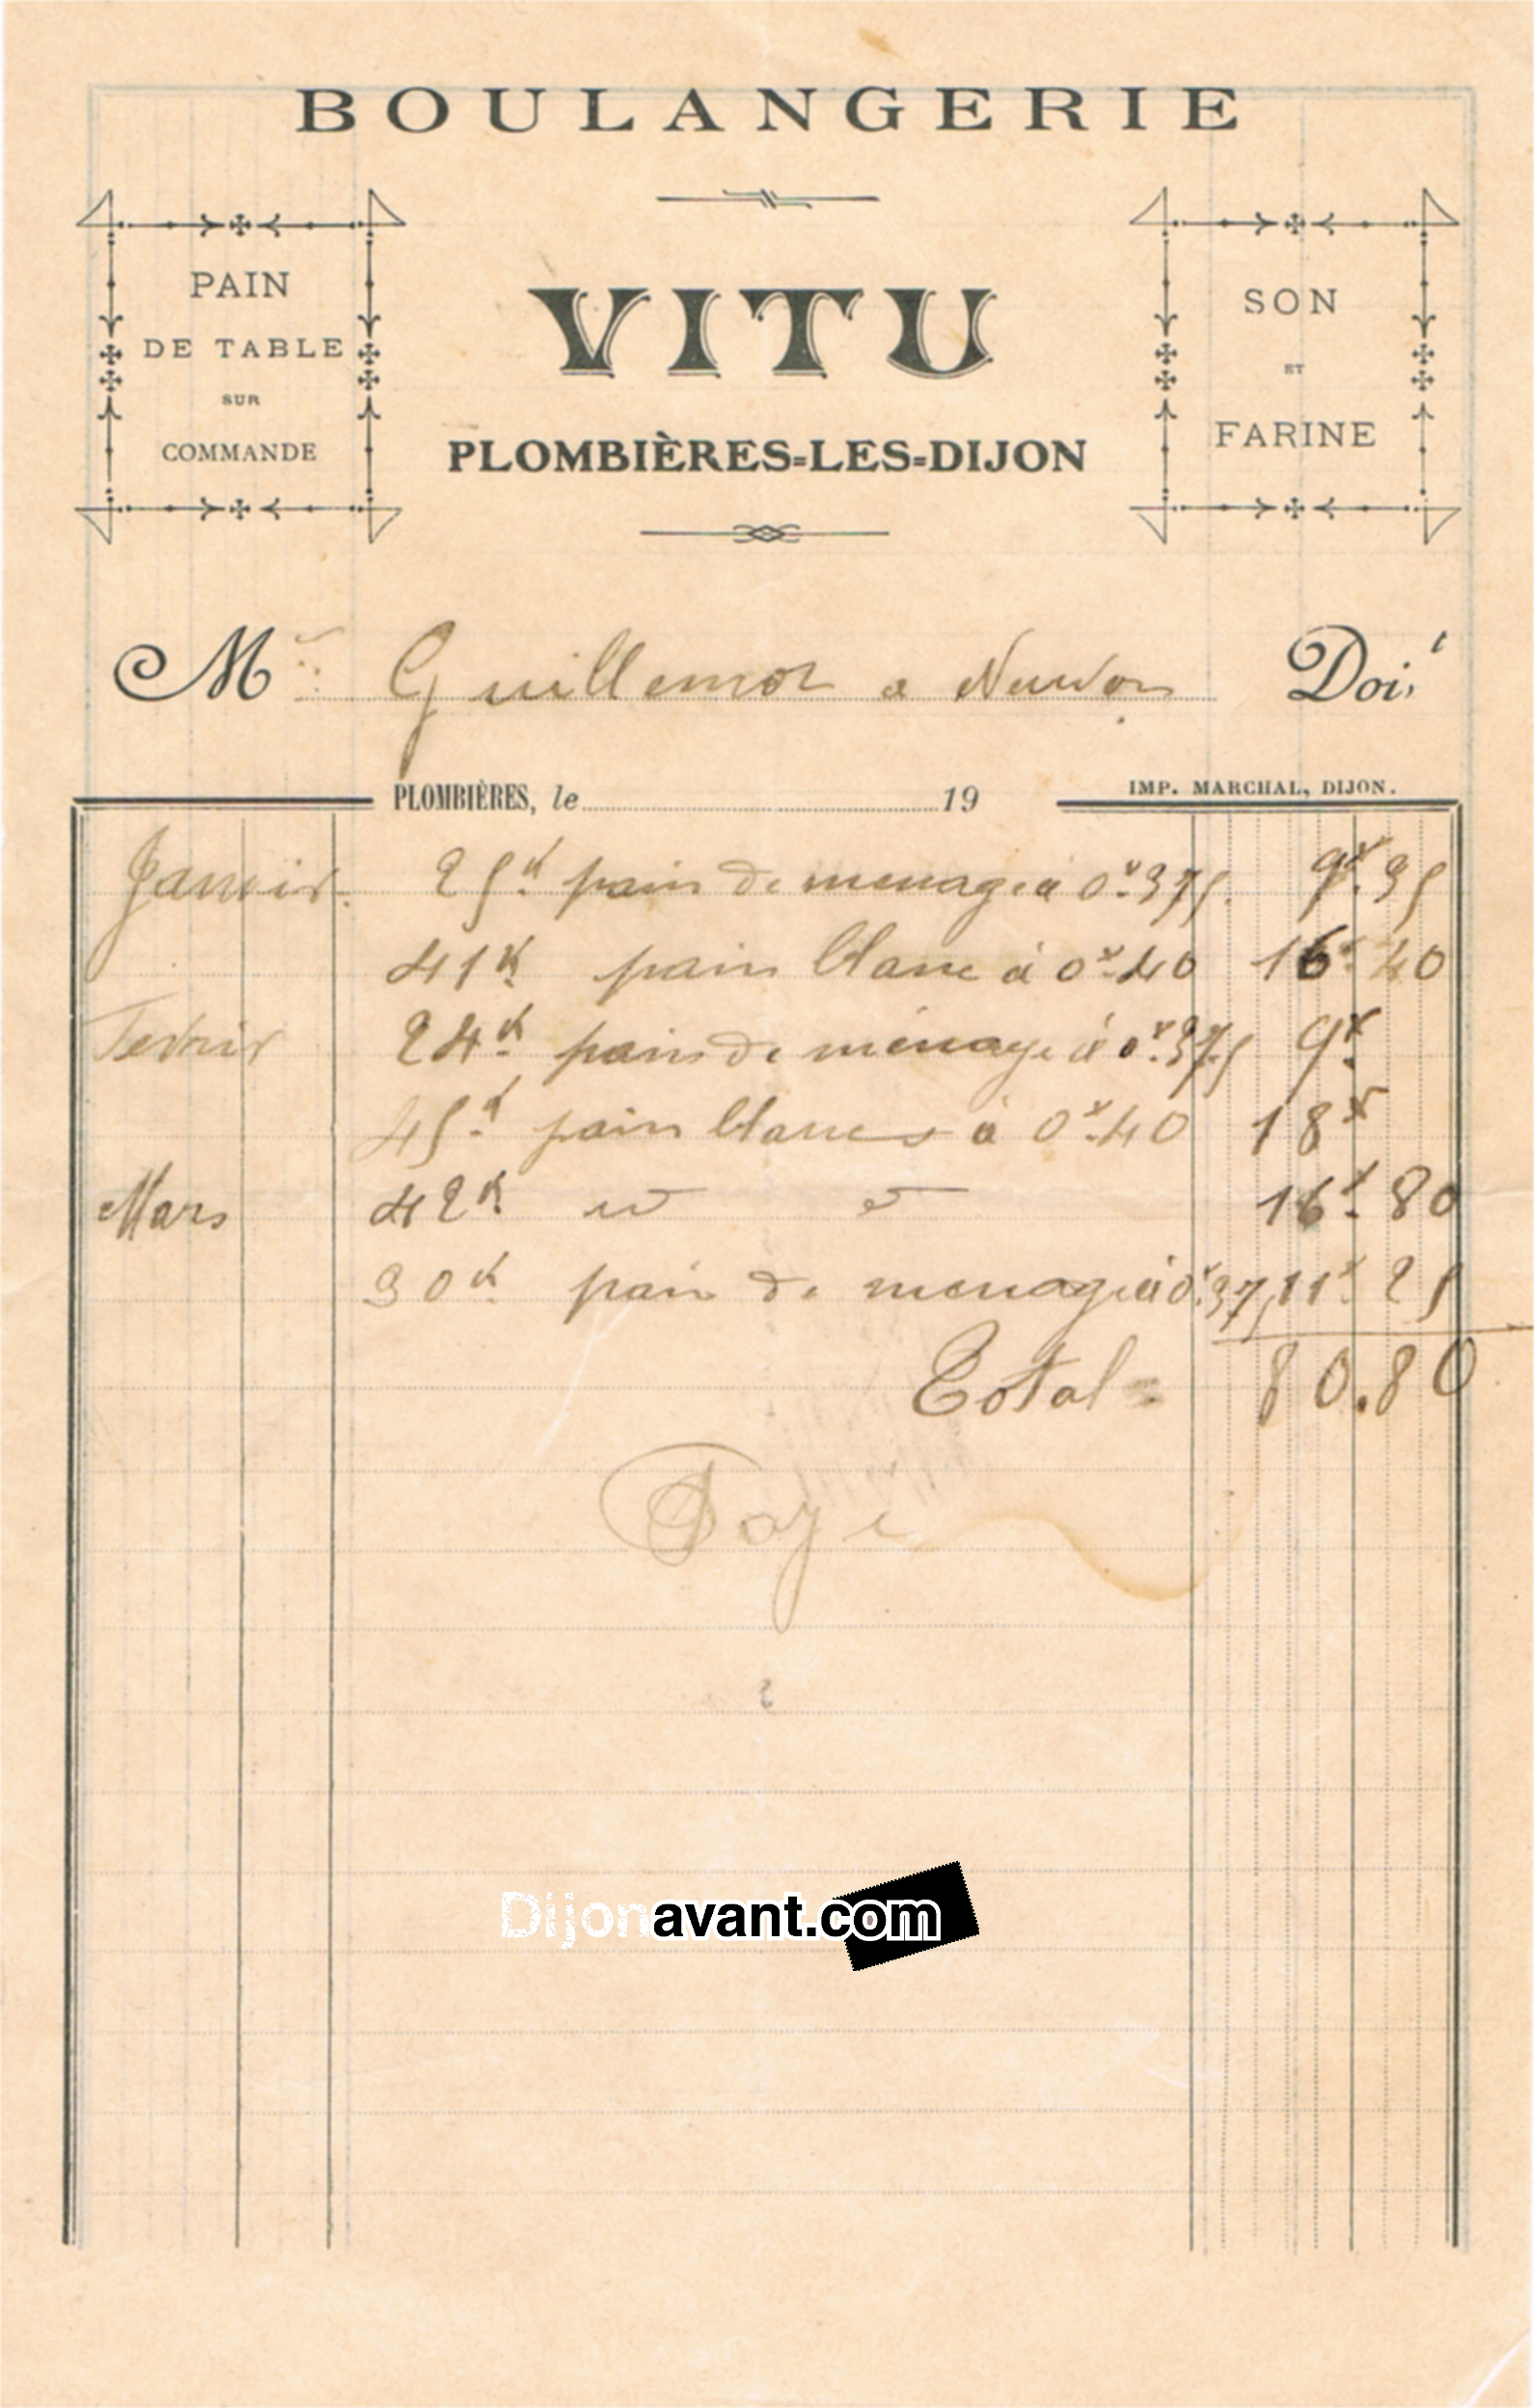 BOULANGERIE
PAIN
DE TABLE
SUR
COMMANDE
VITU
PLOMBIÈRES-LES-DIJON
SON
ET
FARINE
M Guillemot a Neuvon Doit
PLOMBIÈRES, le 19
IMP. MARCHAL, DIJON.
Janvier 25k pain de menage à 0f375 9f35
41k pain blanc à 0f40 16f40
Fevrier 24k pain de ménage à 0f375 9f
45k pain blancs à 0f40 18f
Mars 42k 16f80
30k pain de menage à 0f375 11f25
Total = 80.80
Payé
Dijonavant.com